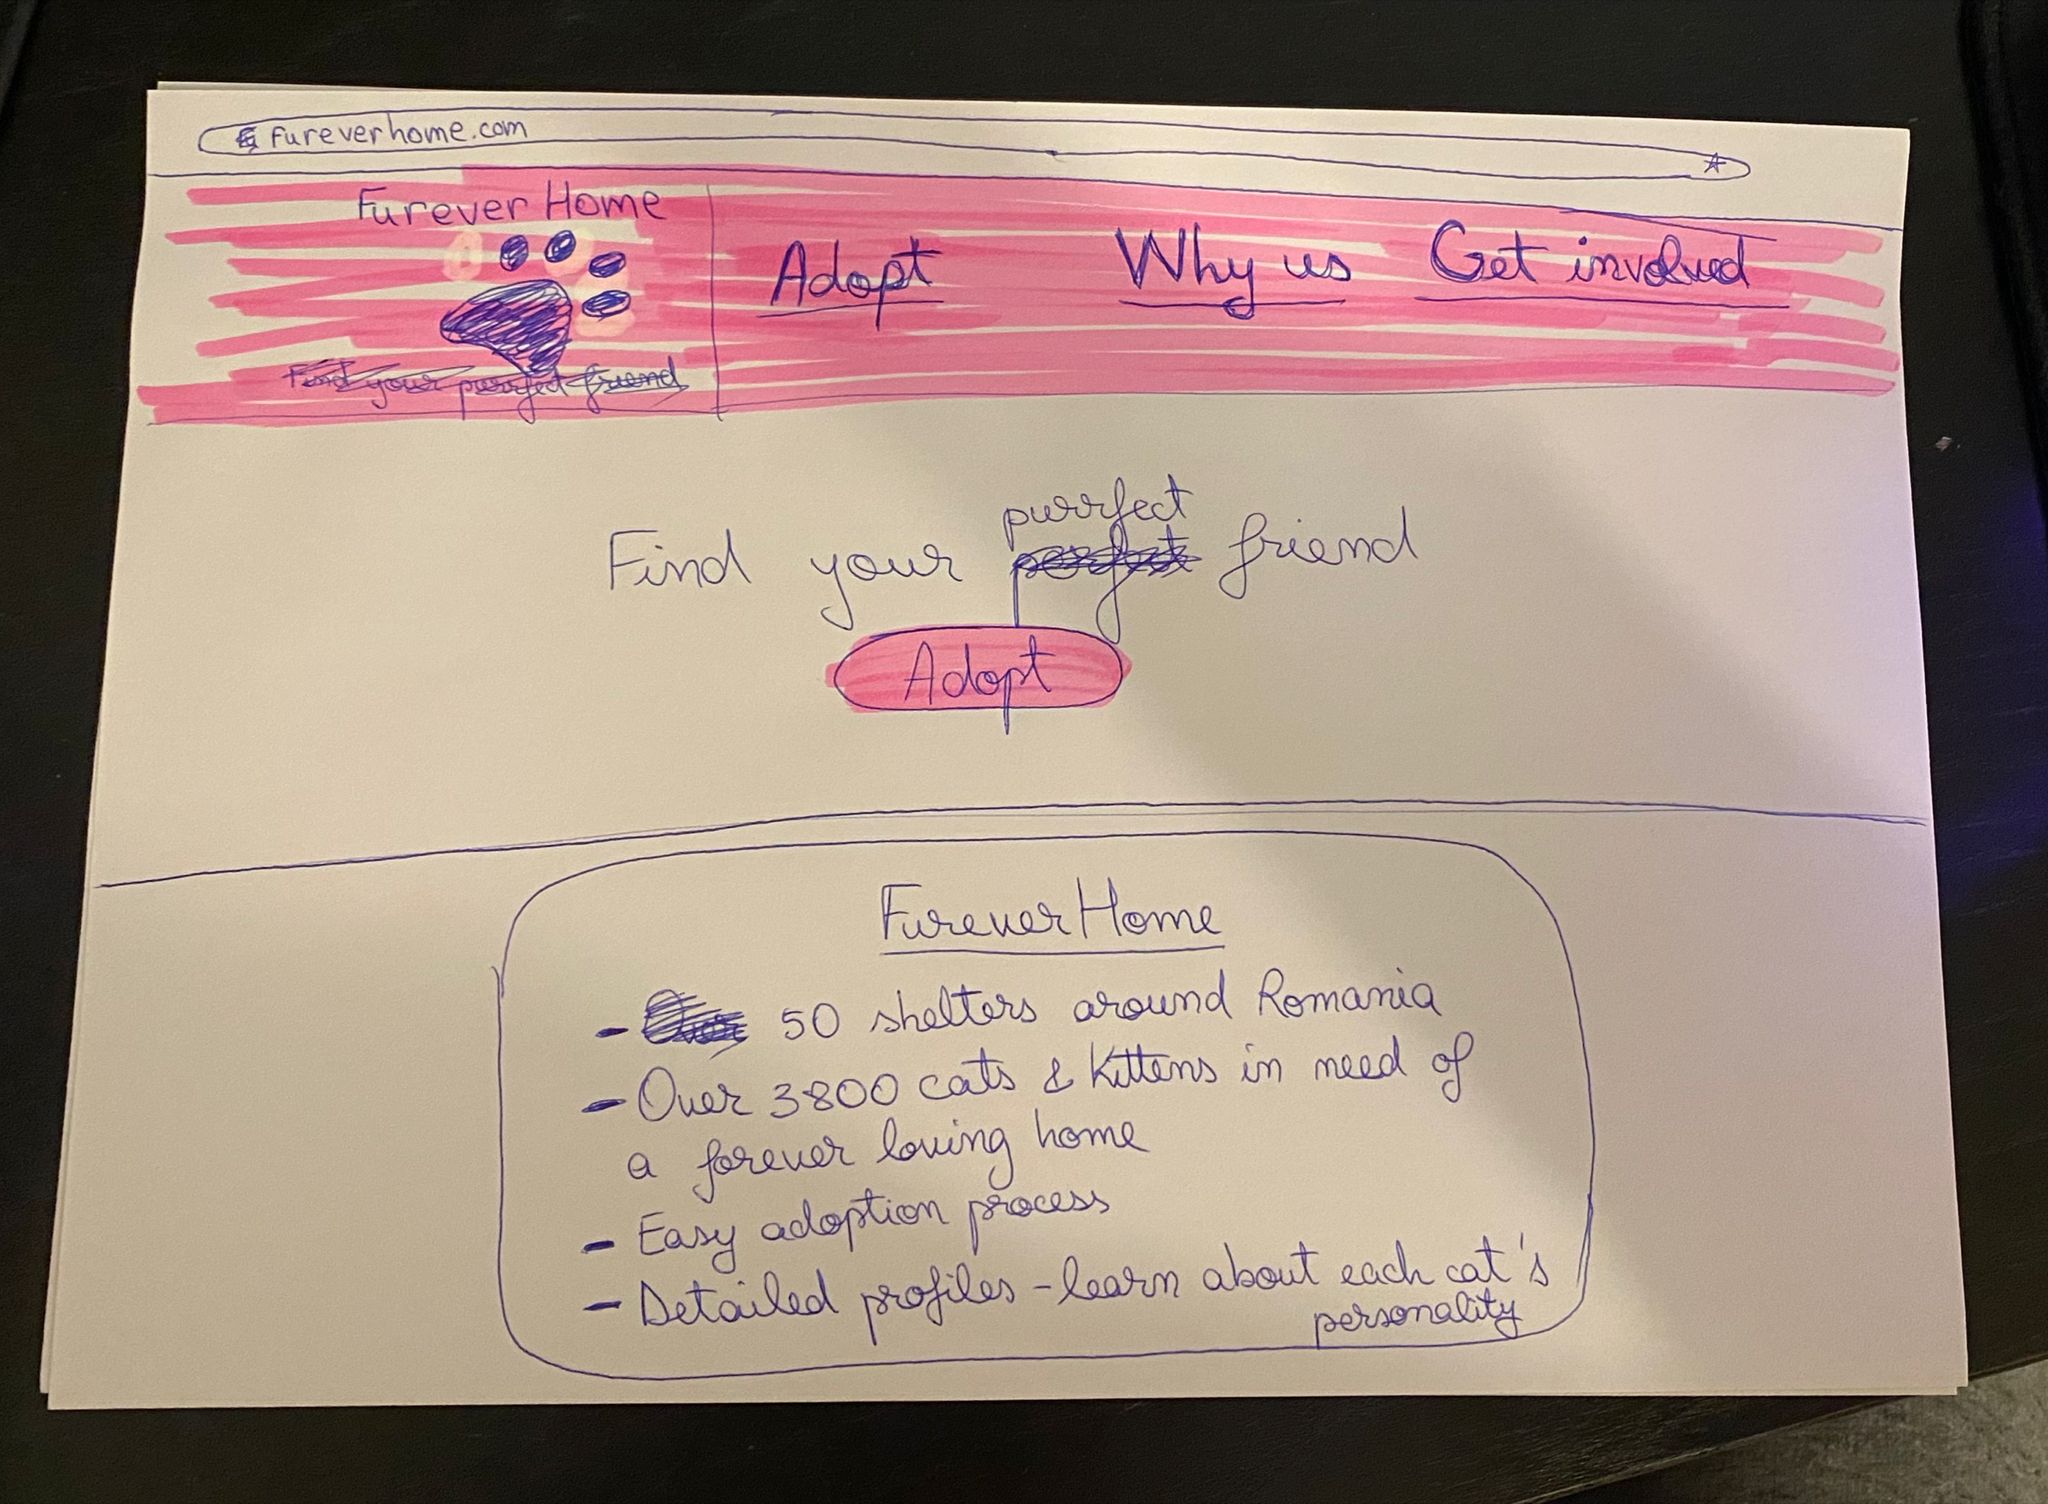 fureverhome.com
FureverHome
Adopt
Why us
Get involved
Find your purrfect friend
Find your purrfect friend
Adopt
FureverHome
- 50 shelters around Romania
- Over 3800 cats & Kittens in need of
a forever loving home
- Easy adoption process
- Detailed profiles - learn about each cat's
personality